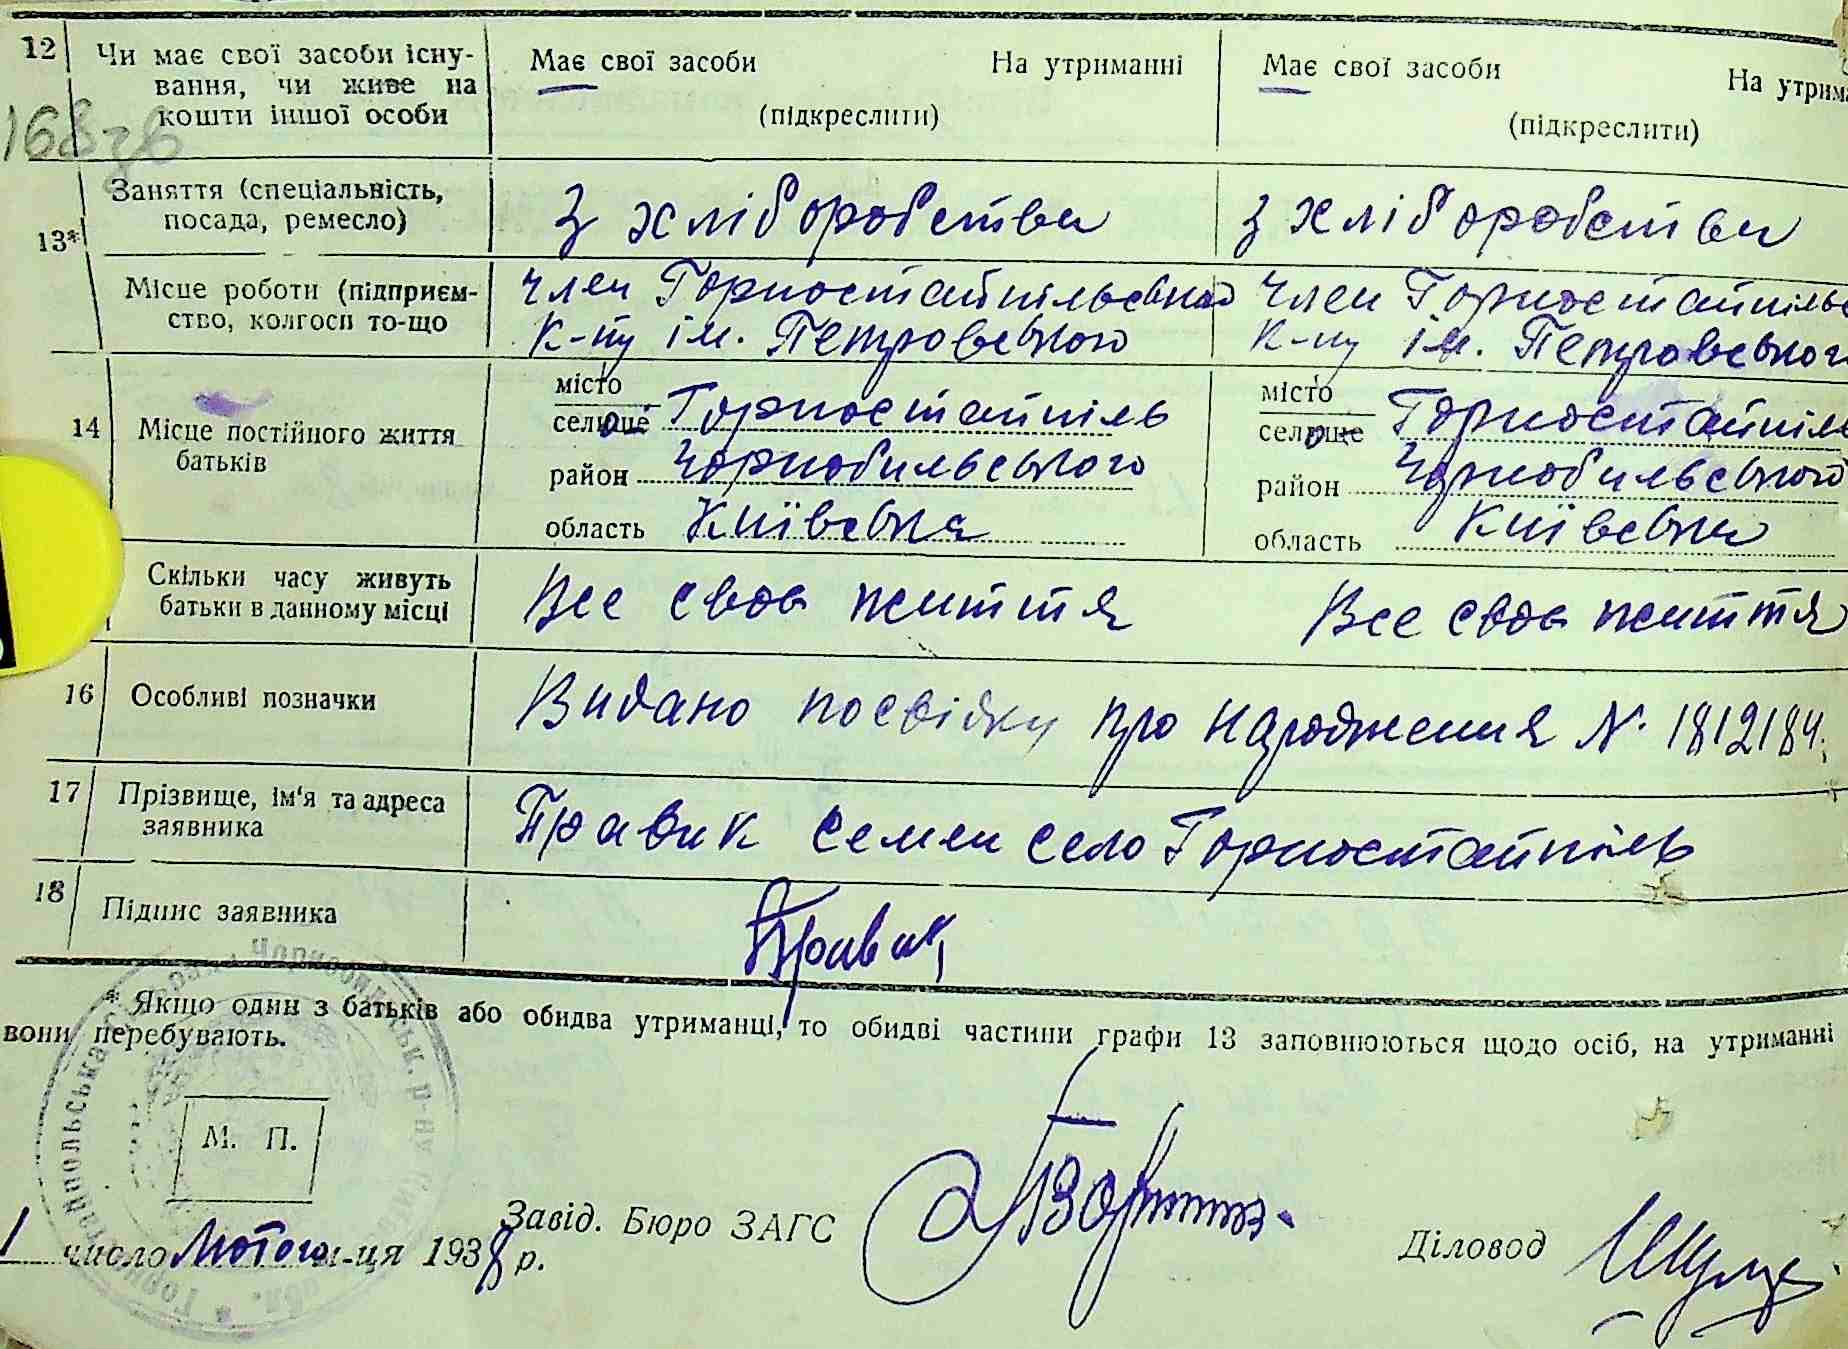 12 Чи має свої засоби існу- Має свої засоби На утриманні Має свої засоби На утрима
вання, чи живе на
кошти іншої особи (підкреслити) (підкреслити)
168
13* Заняття (спеціальність, З хліборобства З хліборобства
посада, ремесло)
Місце роботи (підприєм- член Горностайпільського член Горностайпільс
ство, колгосп то-що К-пу ім. Петровського К-пу ім. Петровського
14 Місце постійного життя місто місто
батьків селище Горностайпіль селище Горностайпіль
район Чорнобильського район Чорнобильського
область Київська область Київська
Скільки часу живуть Все своє життя Все своє життя
батьки в данному місці
16 Особливі позначки Видано посвідку про народження № 1812184.
17 Прізвище, ім'я та адреса Правик Семен село Горностайпіль
заявника
18 Підпис заявника Правик
* Якщо один з батьків або обидва утриманці, то обидві частини графи 13 заповнюються щодо осіб, на утриманні
вони перебувають.
М. П.
1 число Лютого м-ця 1938 р. Завід. Бюро ЗАГС Діловод